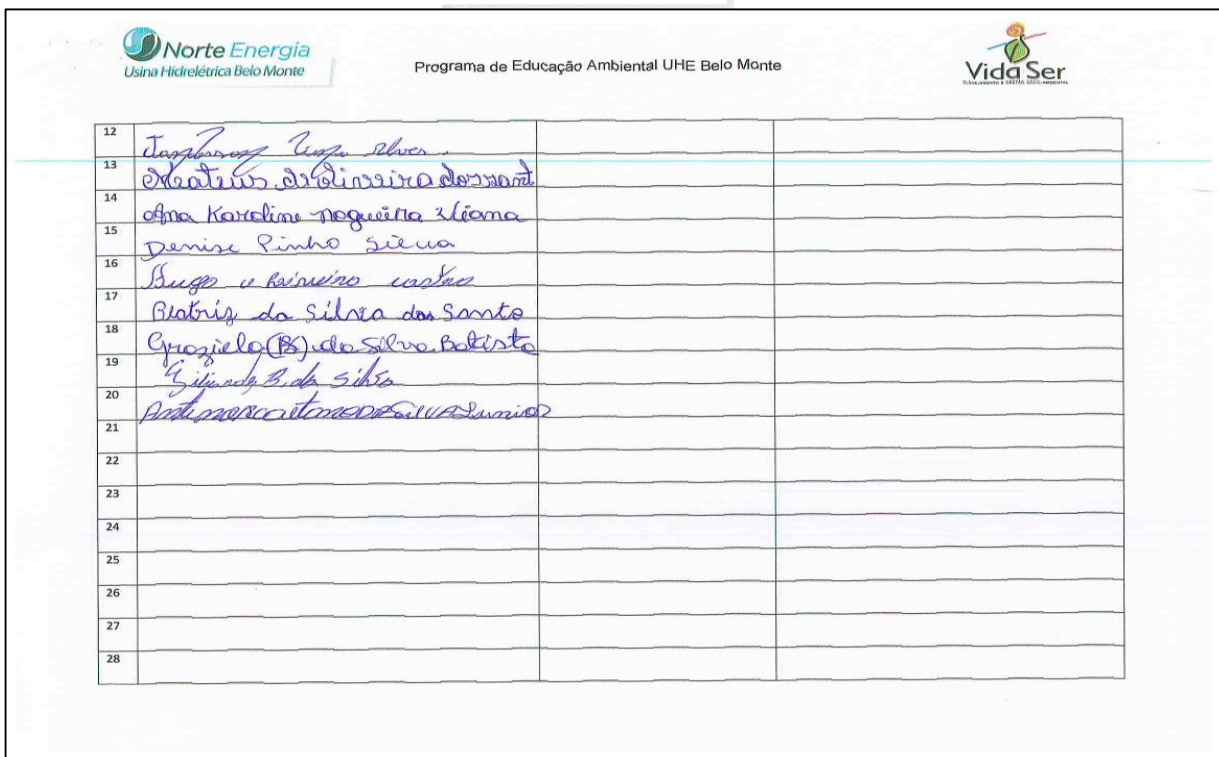 Norte Energia
Usina Hidrelétrica Belo Monte
Programa de Educação Ambiental UHE Belo Monte
Vida Ser
12 Alves
13 Mateus de Oliveira dos sant
14 Ana Karoline nogueira Viana
15 Denise Pinho Silva
16 castro
17 Beatriz da Silva dos Santo
18 Graziela (B) da Silva Batista
19 B. da Silva
20 Silva Junior
21
22
23
24
25
26
27
28